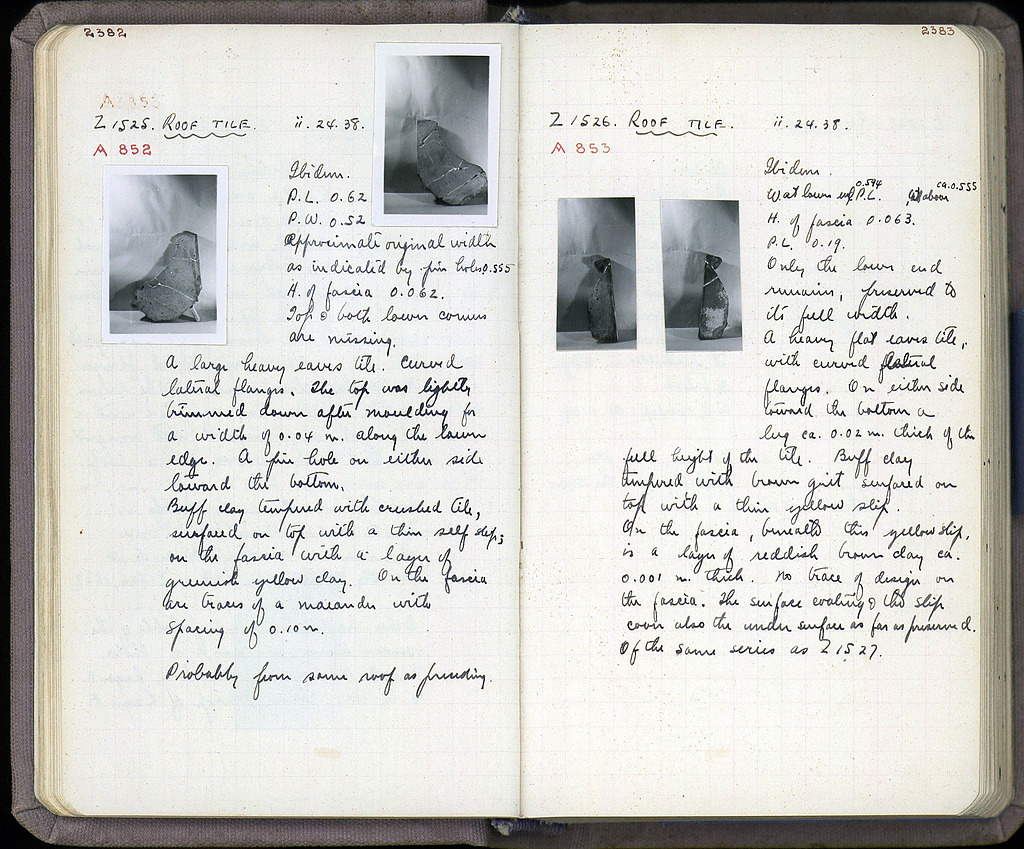 2382
A 2355
Z 1525. ROOF TILE. ii. 24. 38.
A 852
Ibidem.
P. L. 0.62
P. W. 0.52
Approximate original width
as indicated by pin holes 0.555
H. of fascia 0.062.
Top & both lower corners
are missing.
A large heavy eaves tile. Curved
lateral flanges. The top was lightly
trimmed down after moulding for
a width of 0.04 m. along the lower
edge. A pin hole on either side
toward the bottom.
Buff clay tempered with crushed tile,
surfaced on top with a thin self slip;
on the fascia with a layer of
greenish yellow clay. On the fascia
are traces of a maeander with
spacing of 0.10 m.
Probably from same roof as preceding.
2383
Z 1526. ROOF TILE. ii. 24. 38.
A 853
Ibidem.
W at lower end 0.594 P.L. W above ca. 0.555
H. of fascia 0.063.
P.L. 0.19.
Only the lower end
remains, preserved to
its full width.
A heavy flat eaves tile,
with curved lateral
flanges. On either side
toward the bottom a
lug ca. 0.02 m. thick of the
full height of the tile. Buff clay
tempered with brown grit surfaced on
top with a thin yellow slip.
On the fascia, beneath this yellow slip,
is a layer of reddish brown clay ca.
0.001 m. thick. No trace of design on
the fascia. The surface coating & the slip
cover also the under surface as far as preserved.
Of the same series as Z 1527.